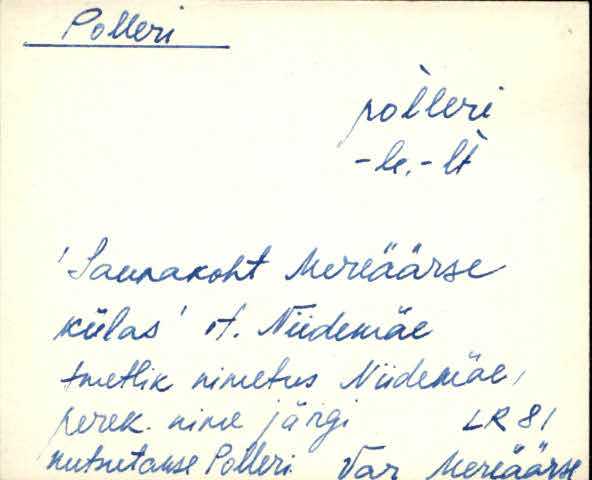 Polleri
pòlleri
-le, -lt
'Saunakoht Mereäärse
külas' vt. Niidemäe
Ametlik nimetus Niidemäe,
perek. nime järgi LR 81
kutsutakse Polleri Var Mereäärse